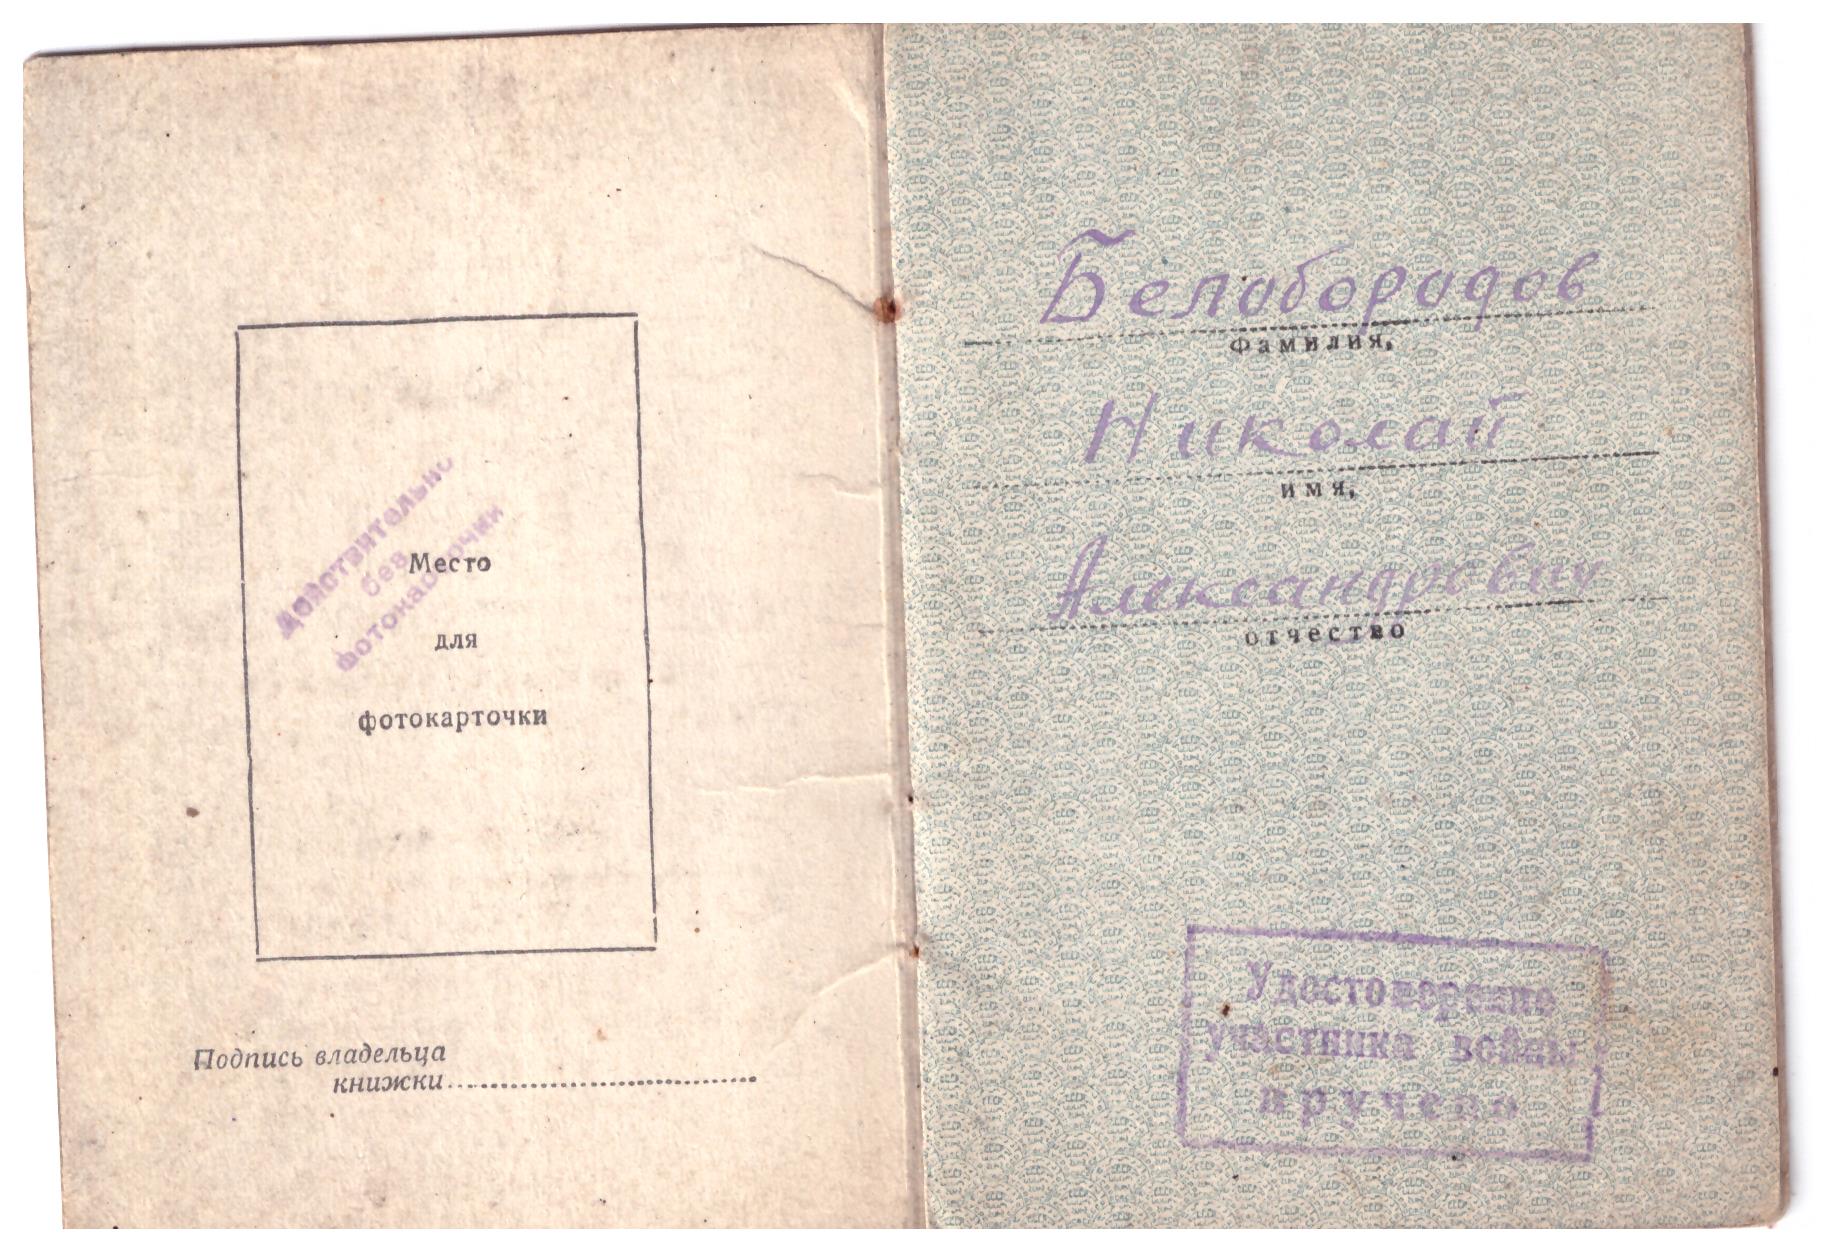 Действительно
без
фотокарточки
Место
для
фотокарточки
Подпись владельца
книжки
Белобородов
Фамилия,
Николай
имя,
Александрович
отчество
Удостоверение
участника войны
вручено